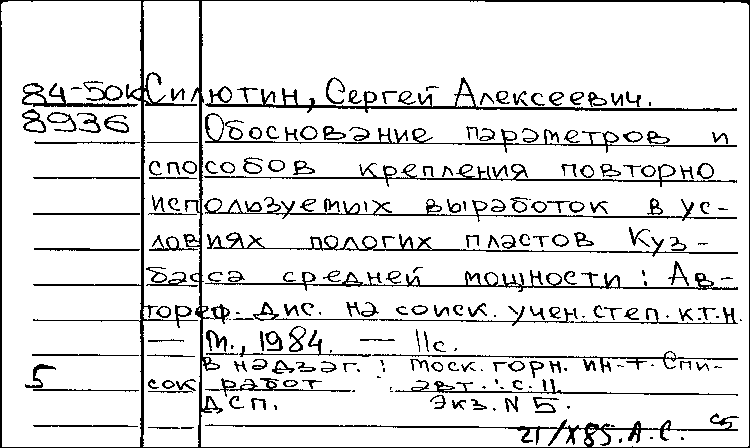 84-50к Силютин, Сергей Алексеевич.
8936 Обоснование параметров и
способов крепления повторно
используемых выработок в ус-
ловиях пологих пластов Куз-
басса средней мощности : Ав-
тореф. дис. на соиск. учен. степ. к.т.н.
— М., 1984. — 11 с.
В надзаг. : Моск. горн. ин-т. Спи-
5 сок работ авт. : с. 11
ДСП. Экз. N 5.
21/X85. А.С. с5